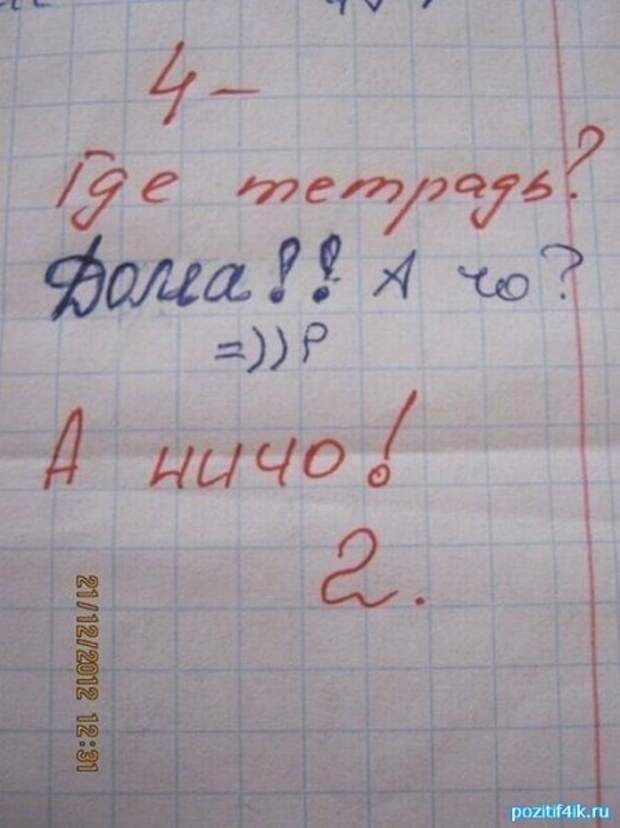 4 -
Где тетрадь?
Дома!! А чо?
=))P
А ничо!
2.
21/12/2012 12:31
pozitif4ik.ru